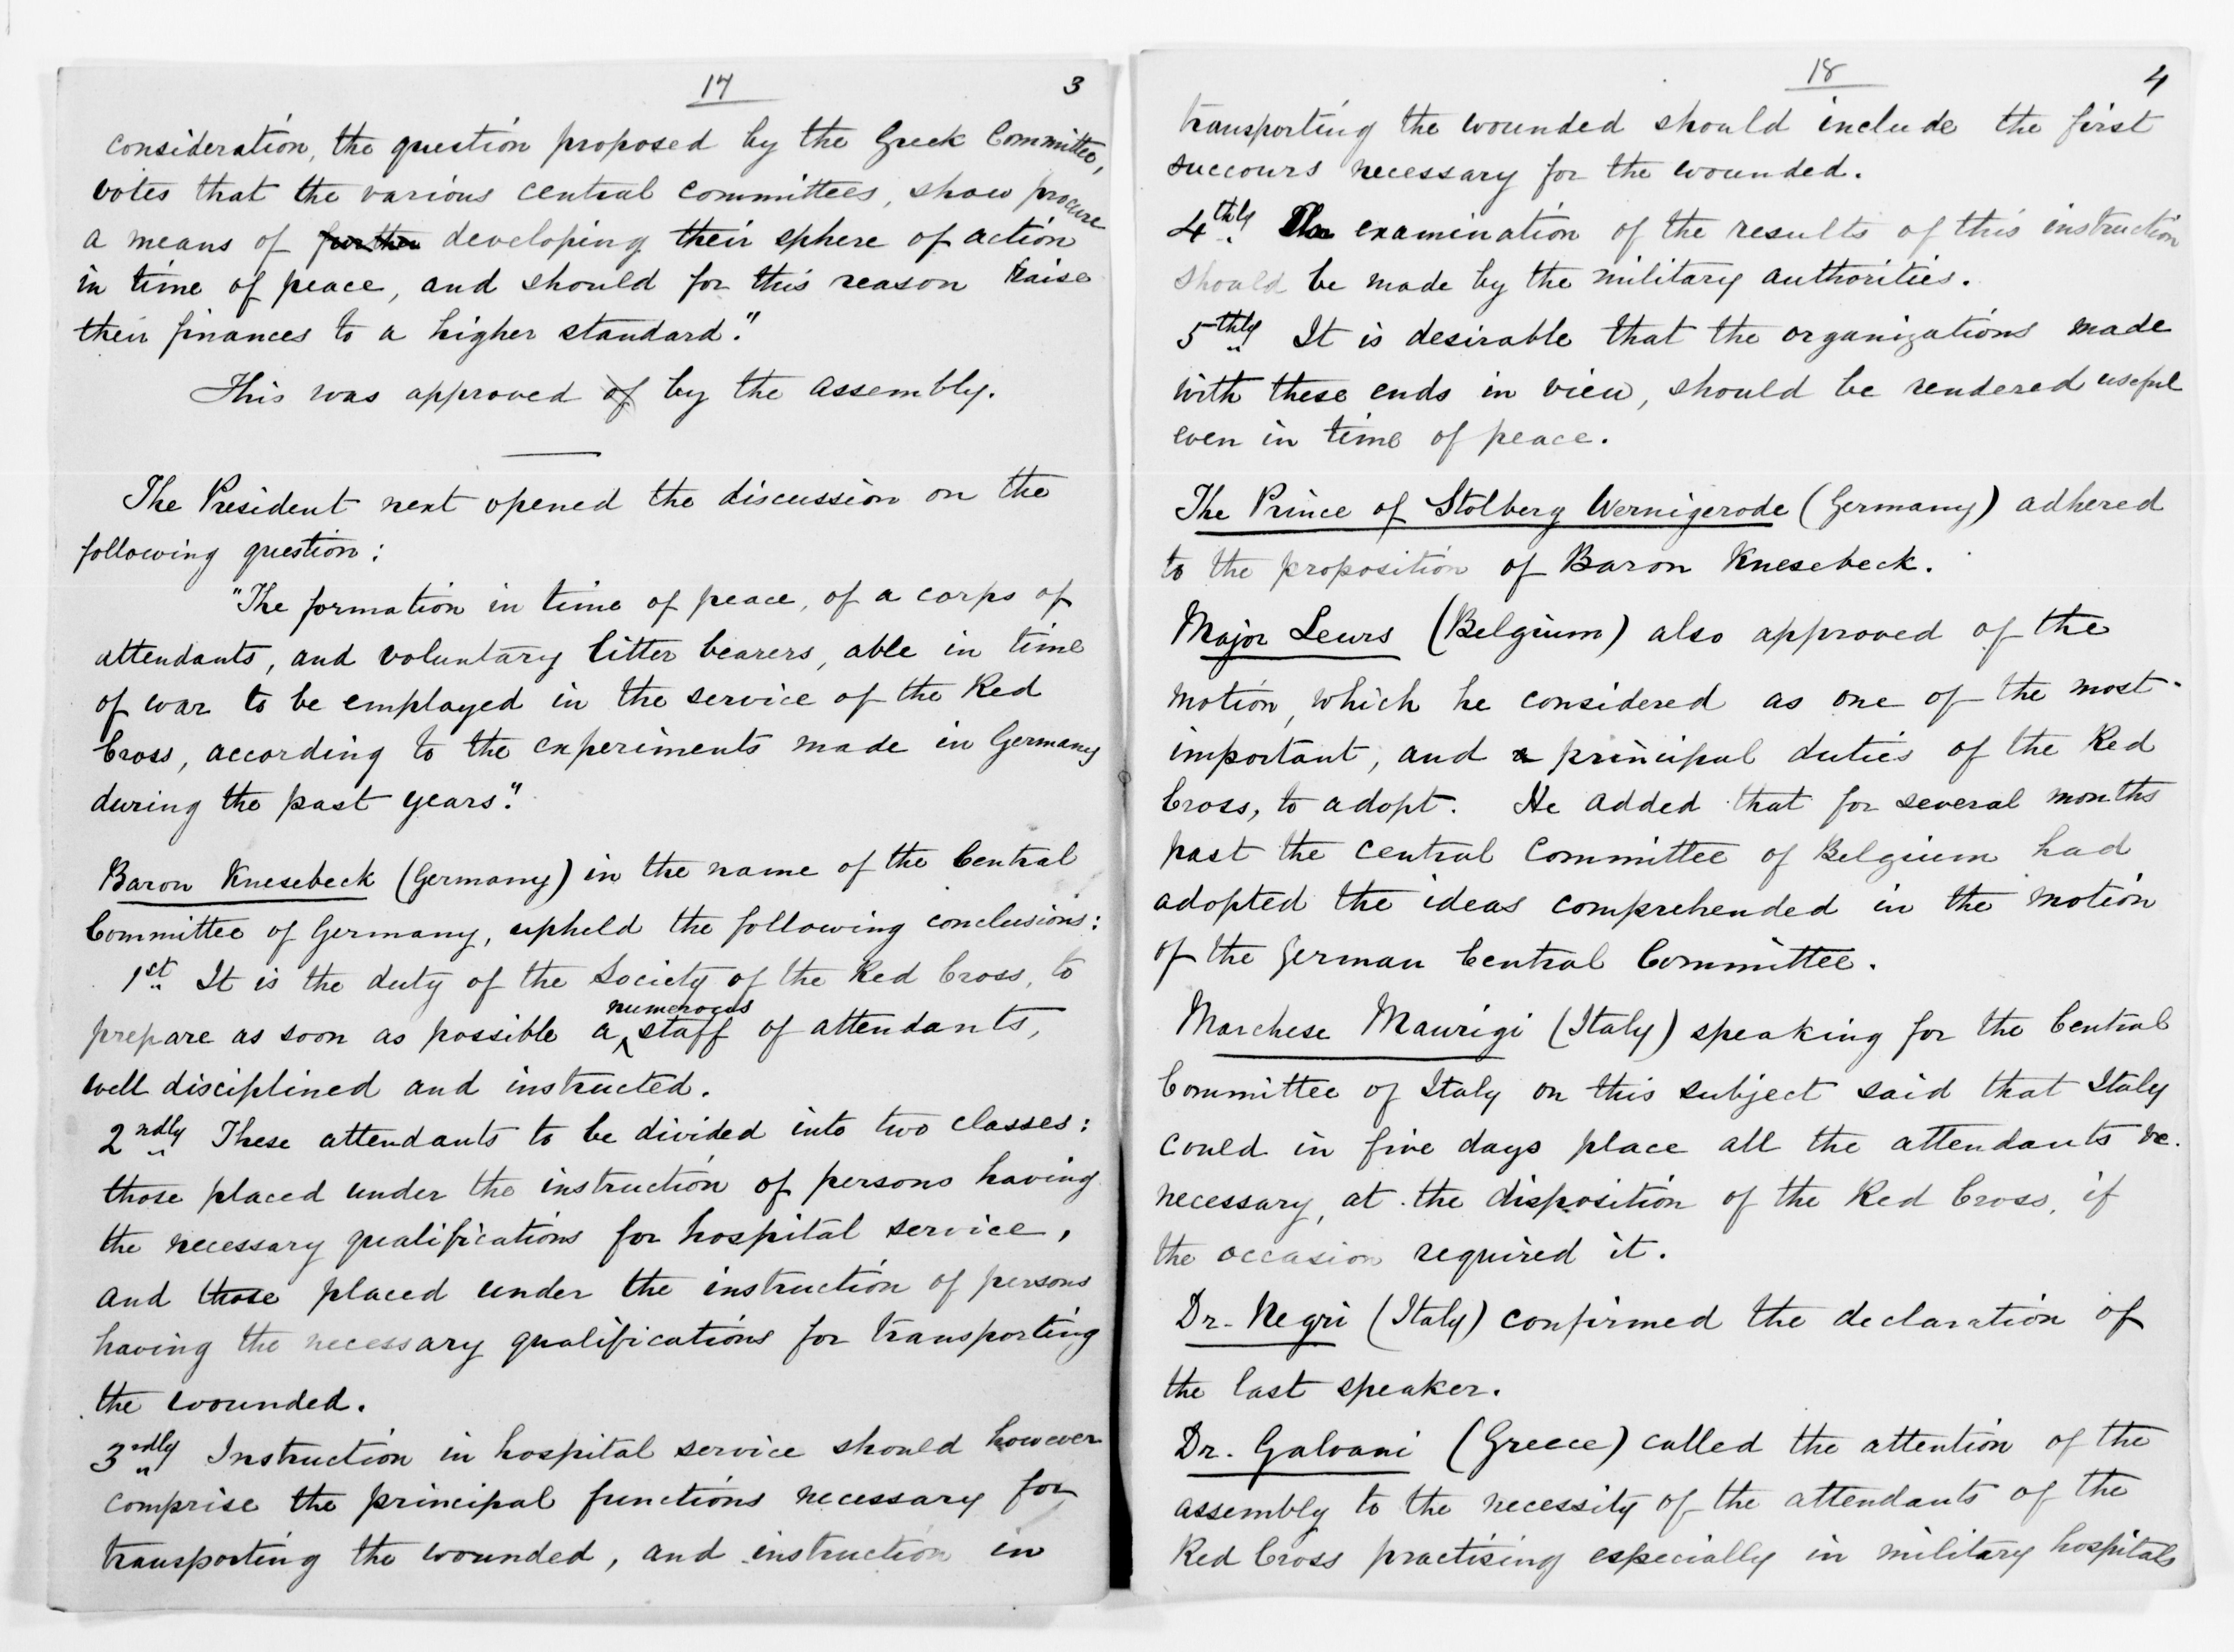 17
3
consideration, the question proposed by the Greek Committee,
votes that the various central committees, show procure
a means of further developing their sphere of action
in time of peace, and should for this reason raise
their finances to a higher standard."
This was approved of by the assembly.
The President next opened the discussion on the
following question:
"The formation in time of peace, of a corps of
attendants, and voluntary litter bearers, able in time
of war to be employed in the service of the Red
Cross, according to the experiments made in Germany
during the past years."
Baron Knesebeck (Germany) in the name of the Central
Committee of Germany, upheld the following conclusions:
1st It is the duty of the Society of the Red Cross, to
prepare as soon as possible a numerous staff of attendants,
well disciplined and instructed.
2ndly These attendants to be divided into two classes:
those placed under the instruction of persons having
the necessary qualifications for hospital service,
and those placed under the instruction of persons
having the necessary qualifications for transporting
the wounded.
3rdly Instruction in hospital service should however
comprise the principal functions necessary for
transporting the wounded, and instruction in
18
4
transporting the wounded should include the first
succours necessary for the wounded.
4thly The examination of the results of this instruction
should be made by the military authorities.
5thly It is desirable that the organizations made
with these ends in view, should be rendered useful
even in time of peace.
The Prince of Stolberg Wernigerode (Germany) adhered
to the proposition of Baron Knesebeck.
Major Leurs (Belgium) also approved of the
motion, which he considered as one of the most
important, and principal duties of the Red
Cross, to adopt. He added that for several months
past the central Committee of Belgium had
adopted the ideas comprehended in the motion
of the German Central Committee.
Marchese Maurigi (Italy) speaking for the Central
Committee of Italy on this subject said that Italy
could in five days place all the attendants &c.
necessary, at the disposition of the Red Cross, if
the occasion required it.
Dr. Negri (Italy) confirmed the declaration of
the last speaker.
Dr. Galvani (Greece) called the attention of the
assembly to the necessity of the attendants of the
Red Cross practising especially in military hospitals